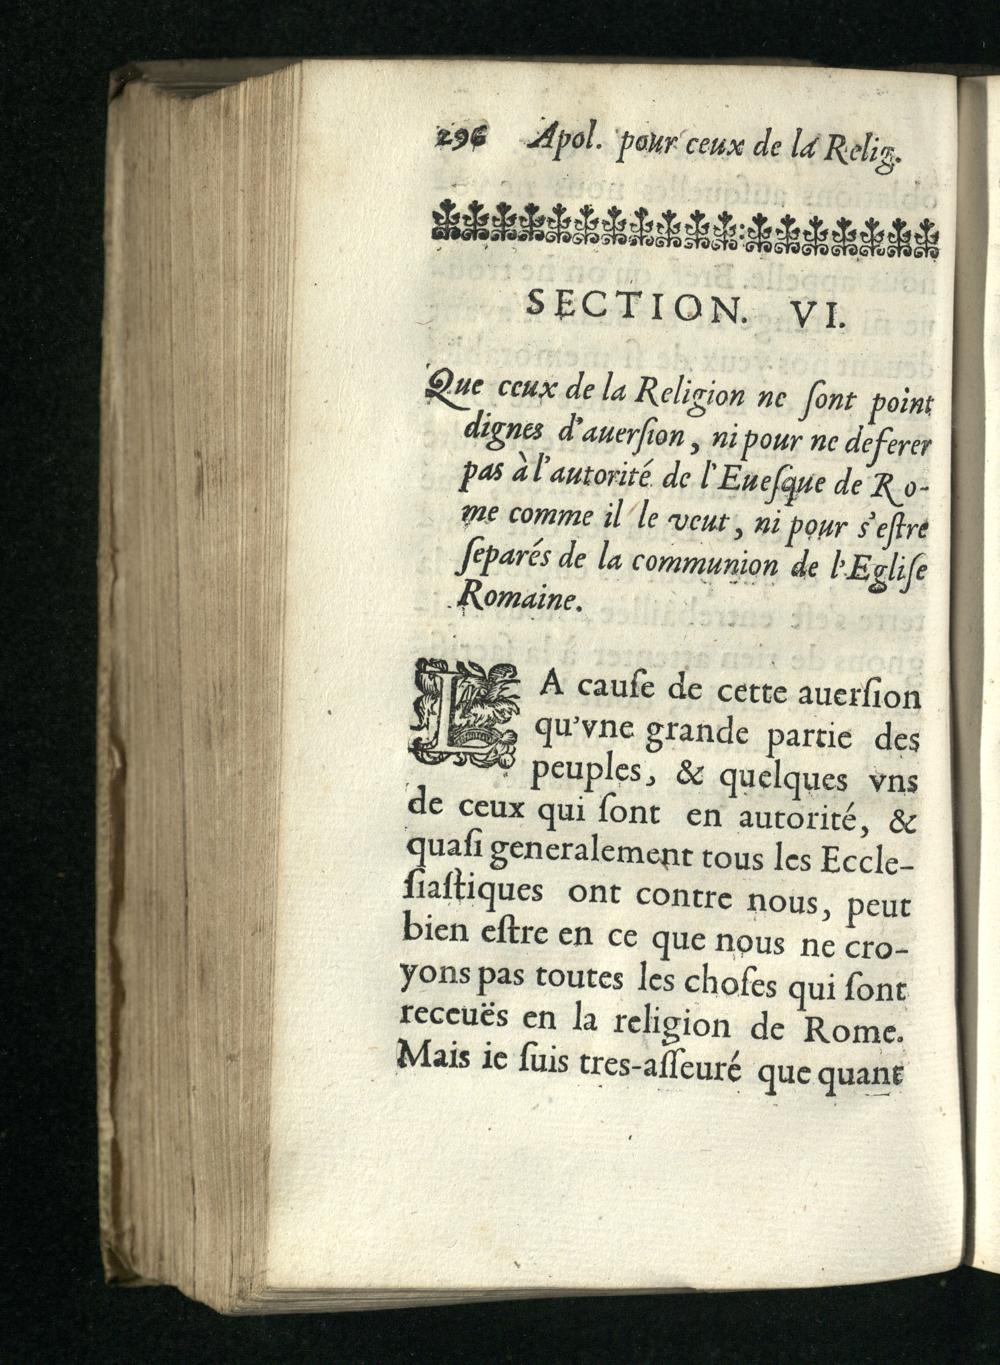 296 Apol. pour ceux de la Relig.
SECTION. VI.
Que ceux de la Religion ne ſont point
dignes d'auerſion, ni pour ne deferer
pas à l'autorité de l'Eueſque de Ro-
me comme il le veut, ni pour s'eſtre
ſeparés de la communion de l'Egliſe
Romaine.
LA cauſe de cette auerſion
qu'vne grande partie des
peuples, & quelques vns
de ceux qui ſont en autorité, &
quaſi generalement tous les Eccle-
ſiaſtiques ont contre nous, peut
bien eſtre en ce que nous ne cro-
yons pas toutes les choſes qui ſont
receuës en la religion de Rome.
Mais ie ſuis tres-aſſeuré que quant